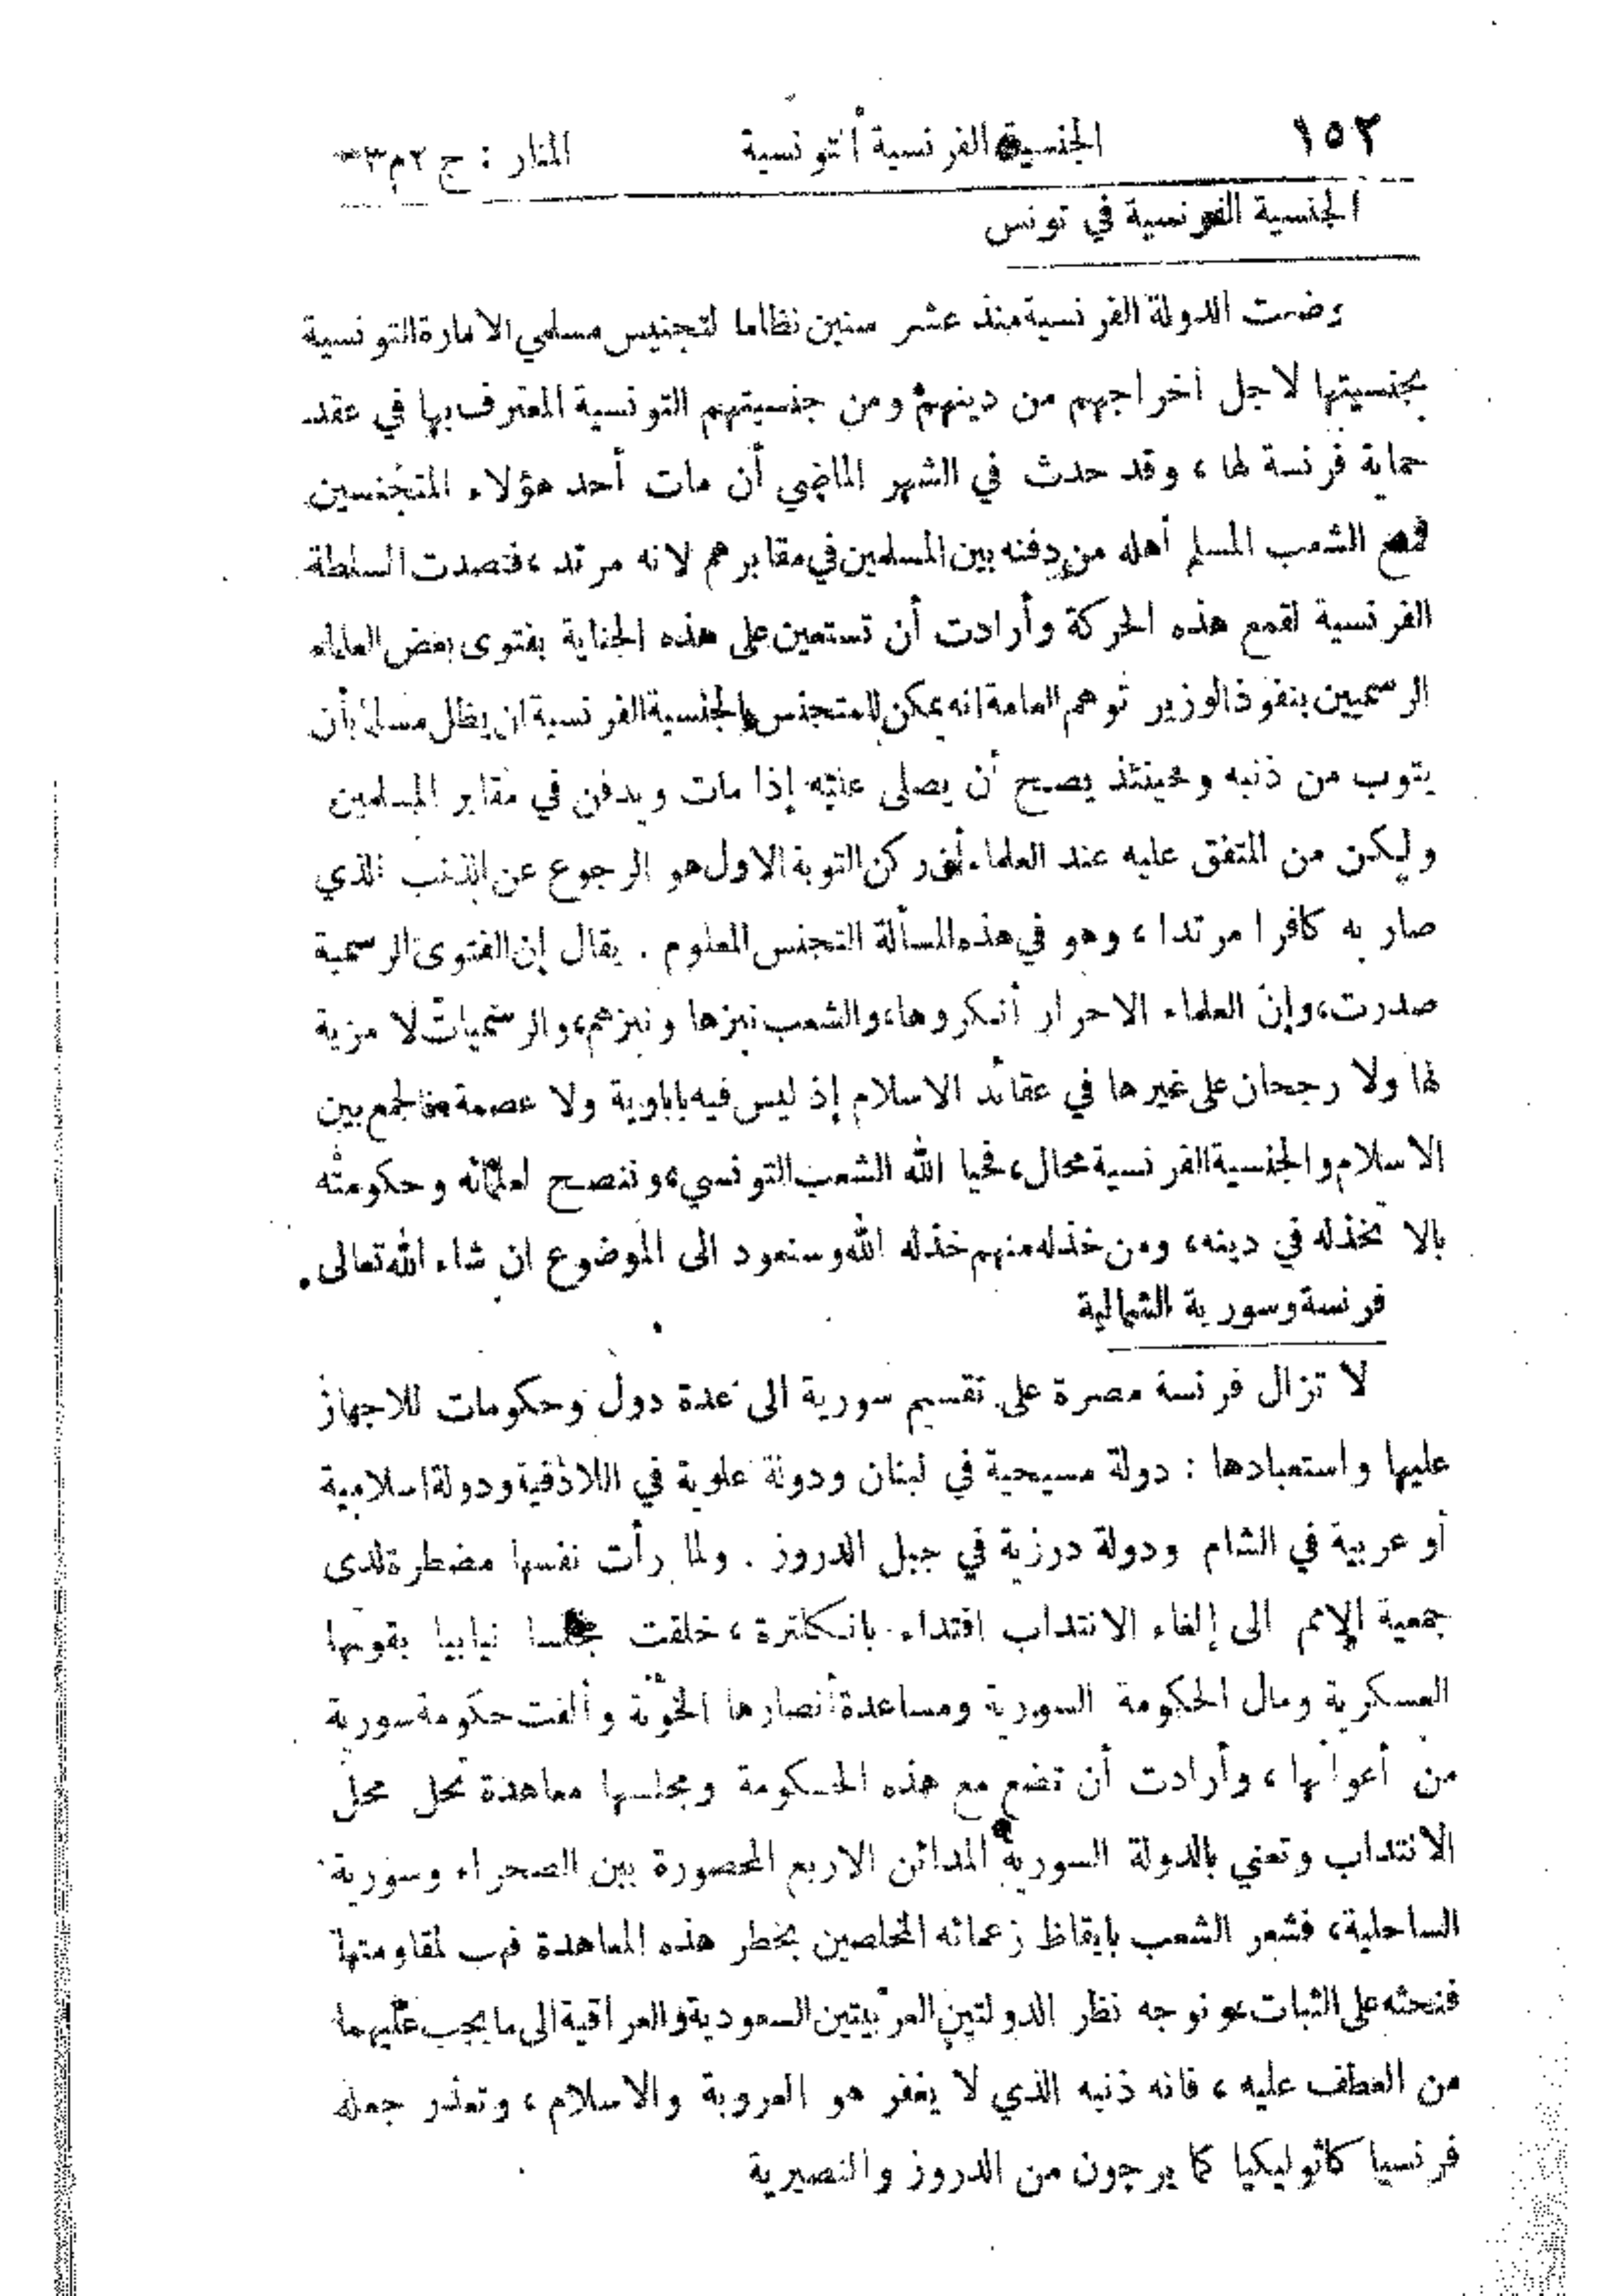 ١٥٢ الجنسية الفرنسية التونسية المنار : ج ٢ م ٣٣
الجنسية الفرنسية في تونس
وضعت الدولة الفرنسية منذ عشر سنين نظاما لتجنيس مسلمي الامارة التونسية
بجنسيتها لاجل اخراجهم من دينهم ومن جنسيتهم التونسية المعترف بها في عقد
حماية فرنسة لها ، وقد حدث في الشهر الماضي أن مات أحد هؤلاء المتجنسين
فمنع الشعب المسلم أهله من دفنه بين المسلمين في مقابرهم لانه مرتد ، فتصدت السلطة
الفرنسية لقمع هذه الحركة وأرادت أن تستعين على هذه الجناية بفتوى بعض العلماء
الرسميين بنفوذ الوزير توهم العامة انه يمكن للمتجنس بالجنسية الفرنسية ان يظل مسلما بأن
يتوب من ذنبه وحينئذ يصح أن يصلى عليه إذا مات ويدفن في مقابر المسلمين
وليكن من المتفق عليه عند العلماء أن ركن التوبة الاول هو الرجوع عن الذنب الذي
صار به كافرا مرتدا ، وهو في هذه المسألة التجنس المعلوم . يقال إن الفتوى الرسمية
صدرت ، وإن العلماء الاحرار أنكروها ، والشعب نبزها ونبزهم ، والرسميات لا مزية
لها ولا رجحان على غيرها في عقائد الاسلام إذ ليس فيه باباوية ولا عصمة فالجمع بين
الاسلام والجنسية الفرنسية محال ، فحيا الله الشعب التونسي ، وننصح لعلمائه وحكومته
بالا تخذله في دينه ، ومن خذله منهم خذله الله وسنعود الى الموضوع ان شاء الله تعالى .
فرنسة وسورية الشمالية
لا تزال فرنسة مصرة على تقسيم سورية الى عدة دول وحكومات للاجهاز
عليها واستعبادها : دولة مسيحية في لبنان ودولة علوية في اللاذقية ودولة اسلامية
أو عربية في الشام ودولة درزية في جبل الدروز . ولما رأت نفسها مضطرة لدى
جمعية الامم الى إلغاء الانتداب اقتداء بانكلترة ، خلقت مجلسا نيابيا بقوتها
العسكرية ومال الحكومة السورية ومساعدة أنصارها الخونة وألفت حكومة سورية
من أعوانها ، وأرادت أن تضع مع هذه الحكومة ومجلسها معاهدة تحل محل
الانتداب وتعني بالدولة السورية المدائن الاربع المحصورة بين الصحراء وسورية
الساحلية ، فشعر الشعب بايقاظ زعمائه المخلصين بخطر هذه المعاهدة فهب لمقاومتها
فنحثه على الثبات ، ونوجه نظر الدولتين العربيتين السعودية والعراقية الى ما يجب عليهما
من العطف عليه ، فانه ذنبه الذي لا يغفر هو العروبة والاسلام ، وتعذر جعله
فرنسيا كاثوليكيا كما يرجون من الدروز والنصيرية